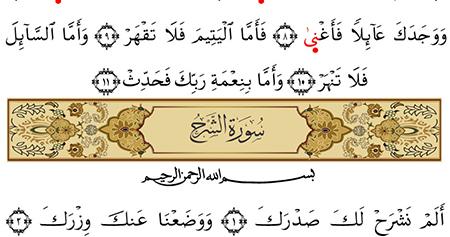 وَوَجَدَكَ عَآئِلًا فَأَغْنَىٰ ﴿٨﴾ فَأَمَّا الْيَتِيمَ فَلَا تَقْهَرْ ﴿٩﴾ وَأَمَّا السَّآئِلَ
فَلَا تَنْهَرْ ﴿١٠﴾ وَأَمَّا بِنِعْمَةِ رَبِّكَ فَحَدِّثْ ﴿١١﴾
سُورَةُ الشَّرْحِ
بسم الله الرحمن الرحيم
أَلَمْ نَشْرَحْ لَكَ صَدْرَكَ ﴿١﴾ وَوَضَعْنَا عَنكَ وِزْرَكَ ﴿٢﴾